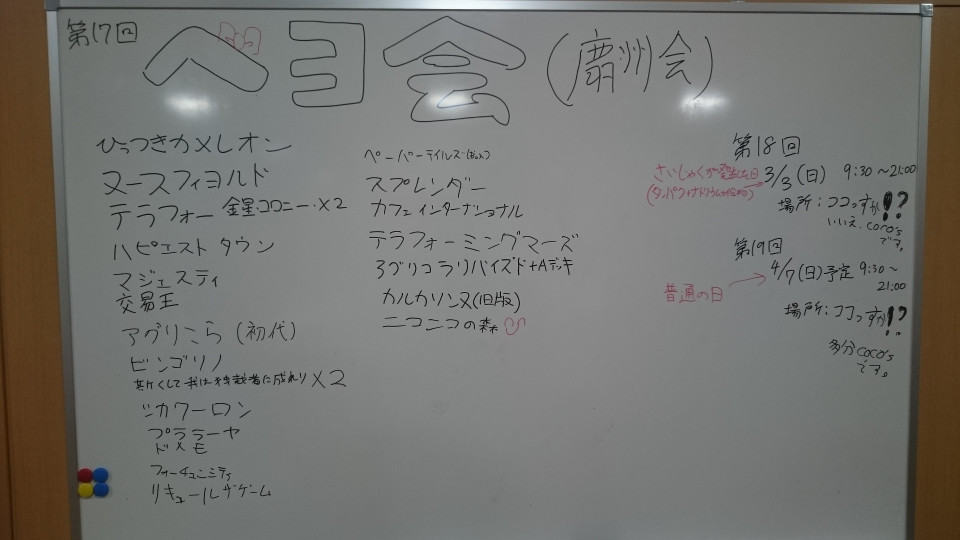 第17回
ヘヨ会
(慶州会)
ひっつきカメレオン
ヌースフィヨルド
テラフォー 金星・コロニー・×2
ハピエストタウン
マジェスティ
交易王
アグリこら (初代)
ビンゴリノ
かくして我は独裁者に成れり×2
ツカワーロン
プララーヤ
ドメモ
フォーチュニミティ
リキュールザゲーム
ペーパーテイルズ
スプレンダー
カフェインターナショナル
テラフォーミングマーズ
アグリコラリバイズド+Aデッキ
カルカソンヌ(旧版)
ニコニコの森
第18回
3/3(日) 9:30~21:00
場所:ココっすか!?
いいえ、coco's
です。
第19回
4/7(日)予定 9:30~
21:00
普通の日
場所:ココっすか!?
多分coco's
です。